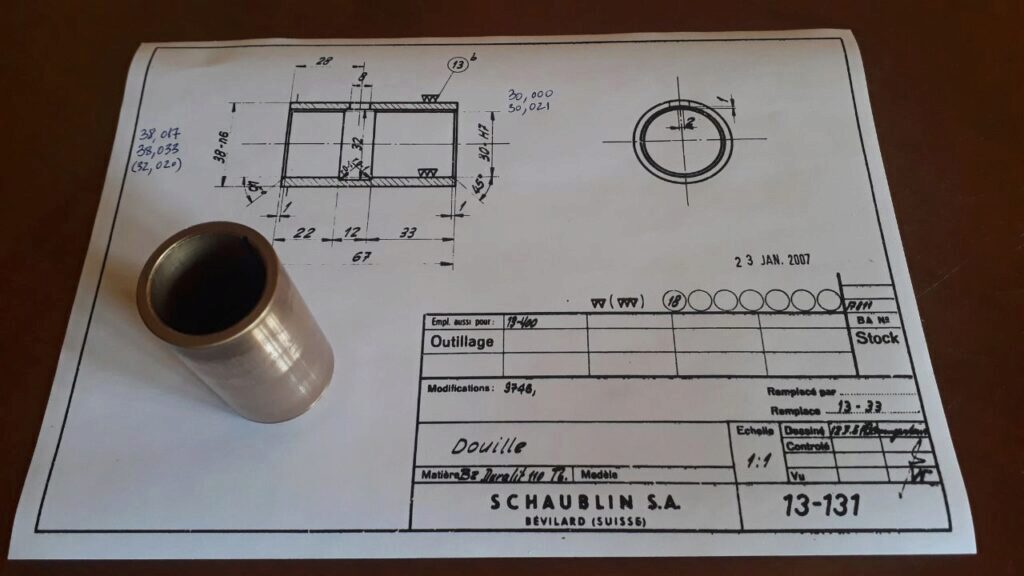 28
8
13 b
30,000
30,021
38,017
38,033
(32,020)
38-n6
32
30-H7
1
2
45°
1
1
22
12
33
67
23 JAN. 2007
18
Empl. aussi pour: 13-400
BA No
Outillage
Stock
Modifications: 3748,
Remplacé par
Remplace 13-33
Douille
Echelle
1:1
Dessiné
Controlé
Vu
Matière Bz Duralit 110 Modèle
SCHAUBLIN S.A.
BÉVILARD (SUISSE)
13-131